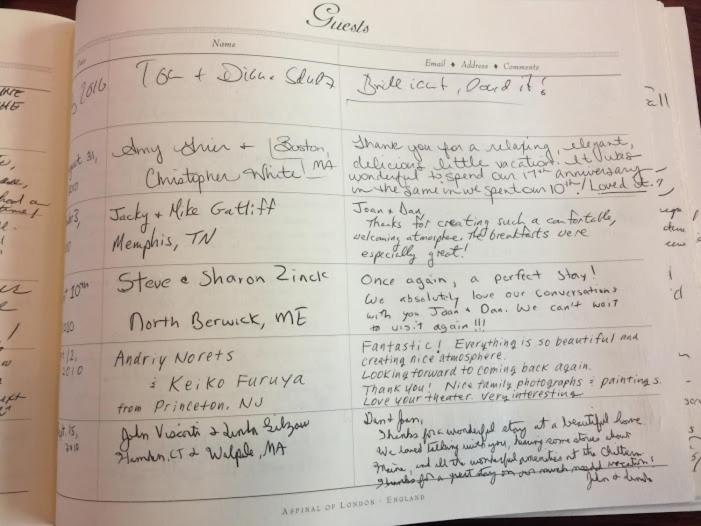 Guests
Name
Email ♦ Address ♦ Comments
2010
Tom + Diane
Brilliant, Loved it!
Amy + Boston, MA
Christopher White
Thank you for a relaxing, elegant,
delicious little vacation. It was
wonderful to spend our 17th anniversary
in the same inn we spent our 10th! Loved it.
Jacky + Mike Gatliff
Memphis, TN
Joan & Dan,
Thanks for creating such a comfortable,
welcoming atmosphere. The breakfasts were
especially great!
10th
Steve & Sharon Zinck
North Berwick, ME
Once again, a perfect stay!
We absolutely love our conversations
with you Joan & Dan. We can't wait
to visit again!!!
12,
2010
Andriy Norets
& Keiko Furuya
from Princeton, NJ
Fantastic! Everything is so beautiful and
creating nice atmosphere.
Looking forward to coming back again.
Thank you! Nice family photographs & paintings.
Love your theater. Very interesting
15,
2010
John Visconti & Linda
Hamden, CT & Walpole, MA
Dan & Joan,
Thanks for a wonderful stay at a beautiful home.
We loved talking with you, hearing some stories about
Maine, and all the wonderful amenities at the
Thanks for a great stay on our much needed vacation!
John & Linda
ASPINAL OF LONDON · ENGLAND